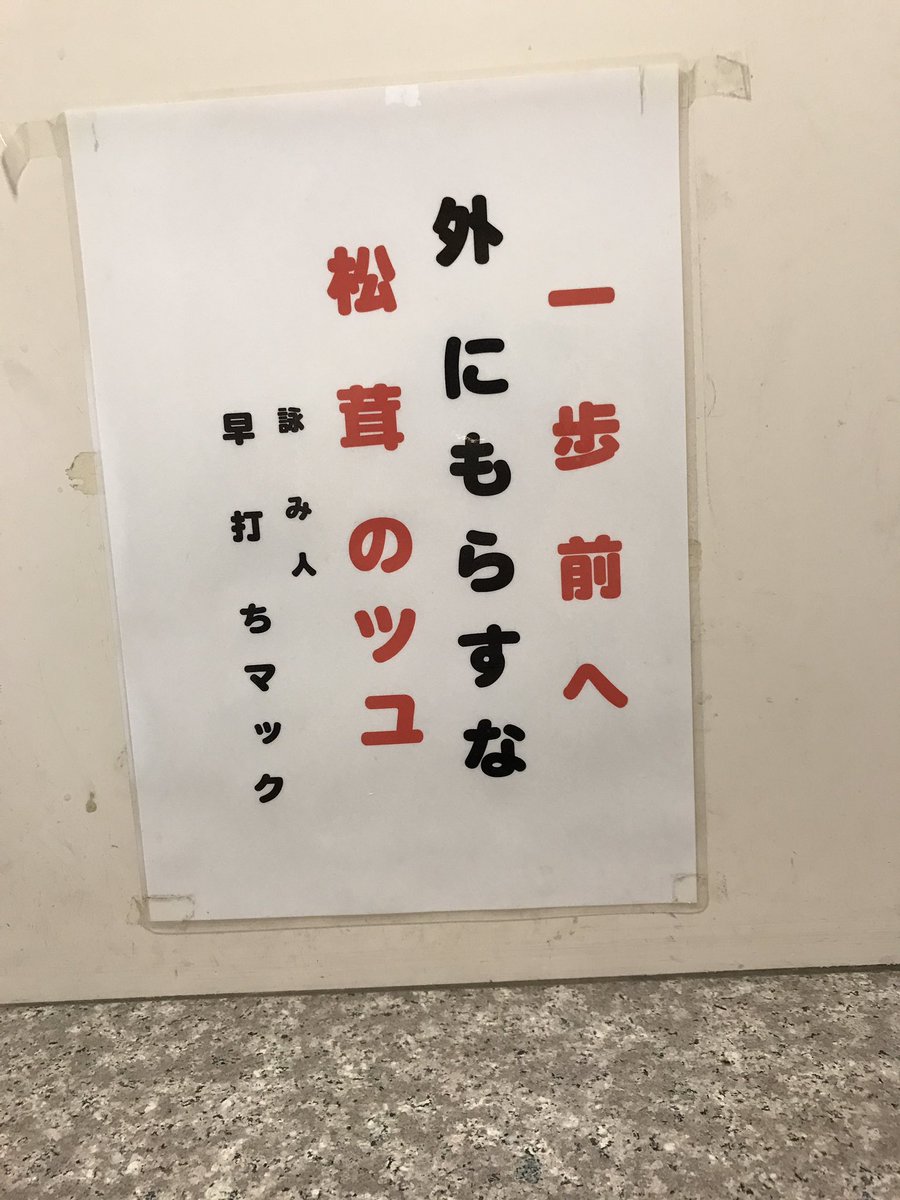 一歩前へ
外にもらすな
松茸のツユ
詠み人
早打ちマック